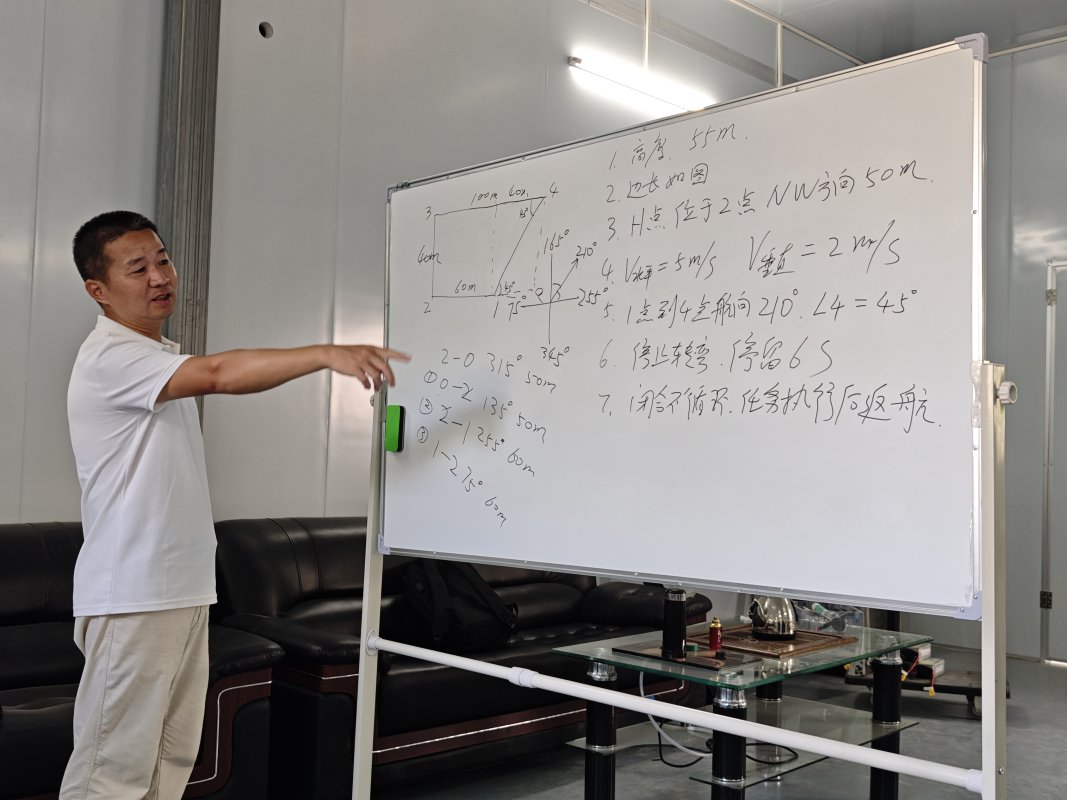 1. 高度. 55m.
2. 边长如图
3. H点位于2点 NW方向50m.
4. V水平=5m/s V垂直=2m/s
5. 1点到4点航向210°. ∠4=45°
6. 停止转弯. 停留6S
7. 闭合不循环. 任务执行后返航.
100m 40m
3 4
45°
40m
60m 45°
2 1
165°
210°
75° 255°
345°
2-0 315° 50m
① 0-2 135° 50m
② 2-1 255° 60m
③ 1-2 75° 60m